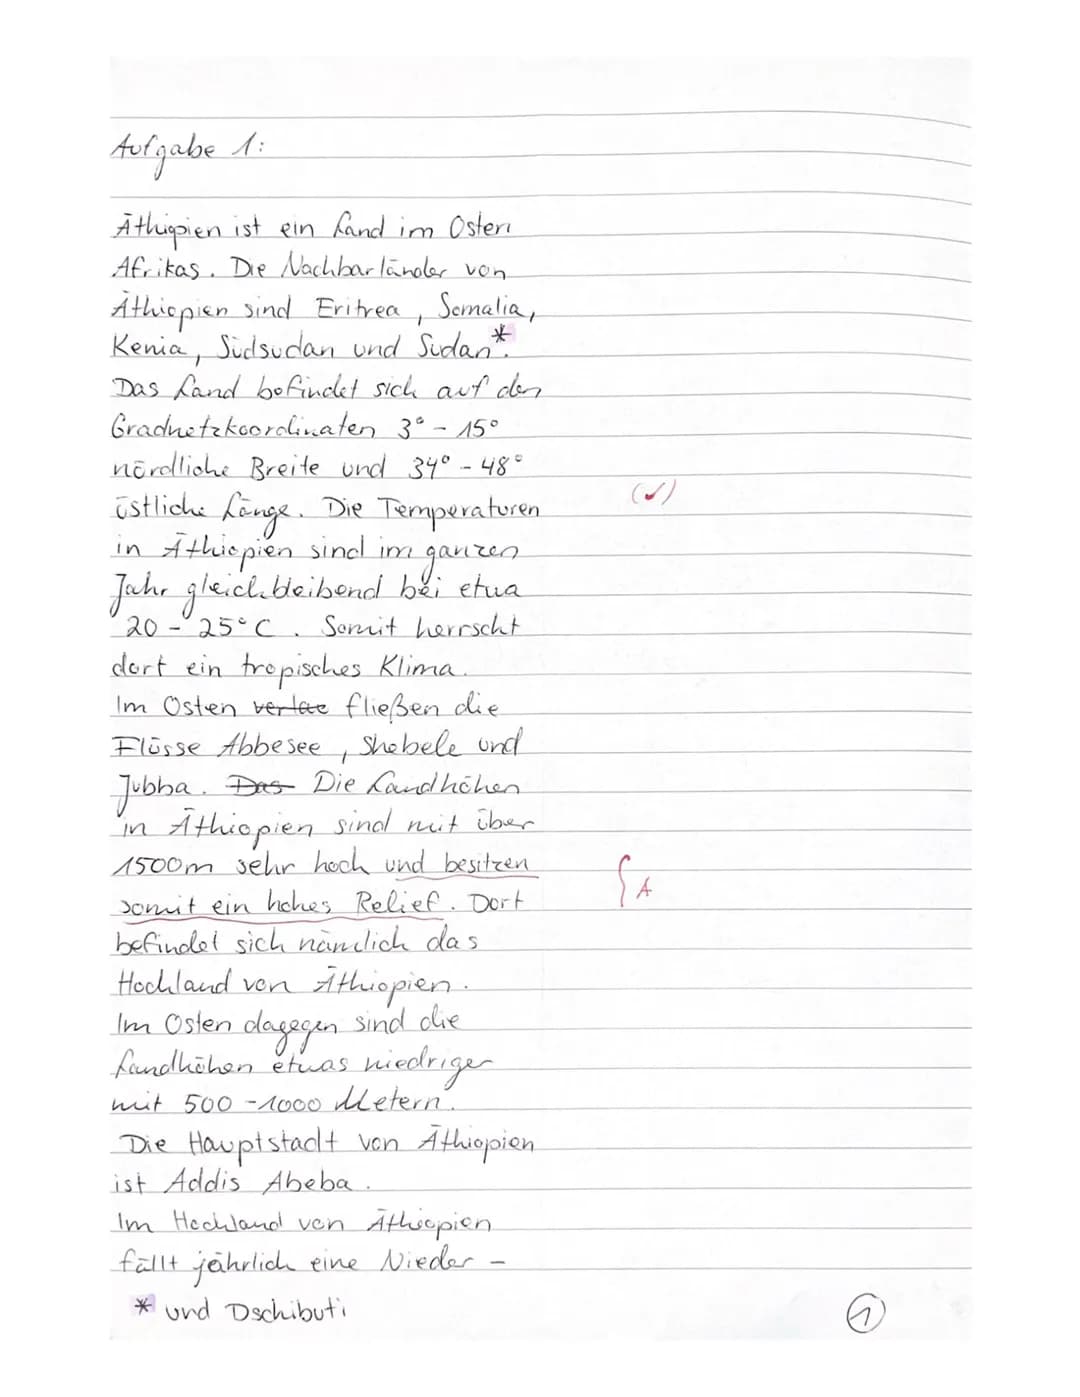 Aufgabe 1:
Äthiopien ist ein Land im Osten
Afrikas. Die Nachbarländer von
Äthiopien sind Eritrea, Somalia,
Kenia, Südsudan und Sudan*.
Das Land befindet sich auf den
Gradnetzkoordinaten 3° - 15°
nördliche Breite und 34° - 48°
östliche Länge. Die Temperaturen
(✓)
in Äthiopien sind im ganzen
Jahr gleichbleibend bei etwa
20 - 25°C. Somit herrscht
dort ein tropisches Klima.
Im Osten verlae fließen die
Flüsse Abbesee, Shebele und
Jubba. Das Die Landhöhen
in Äthiopien sind mit über
1500m sehr hoch und besitzen
somit ein hohes Relief. Dort
A
befindet sich nämlich das
Hochland von Äthiopien.
Im Osten dagegen sind die
Landhöhen etwas niedriger
mit 500 - 1000 Metern.
Die Hauptstadt von Äthiopien
ist Addis Abeba.
Im Hochland von Äthiopien
fällt jährlich eine Nieder -
* und Dschibuti
1